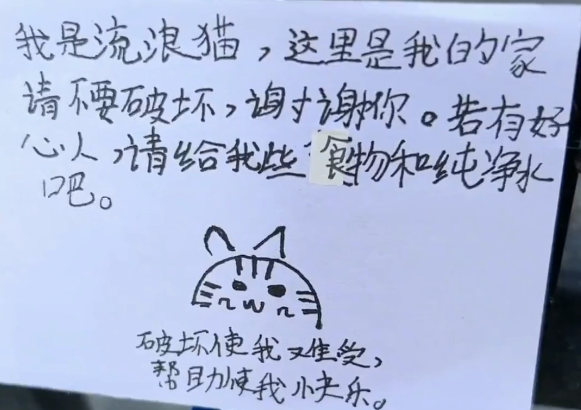 我是流浪猫，这里是我的家
请不要破坏，谢谢你。若有好
心人，请给我些食物和纯净水
吧。
破坏使我难受，
帮助使我快乐。